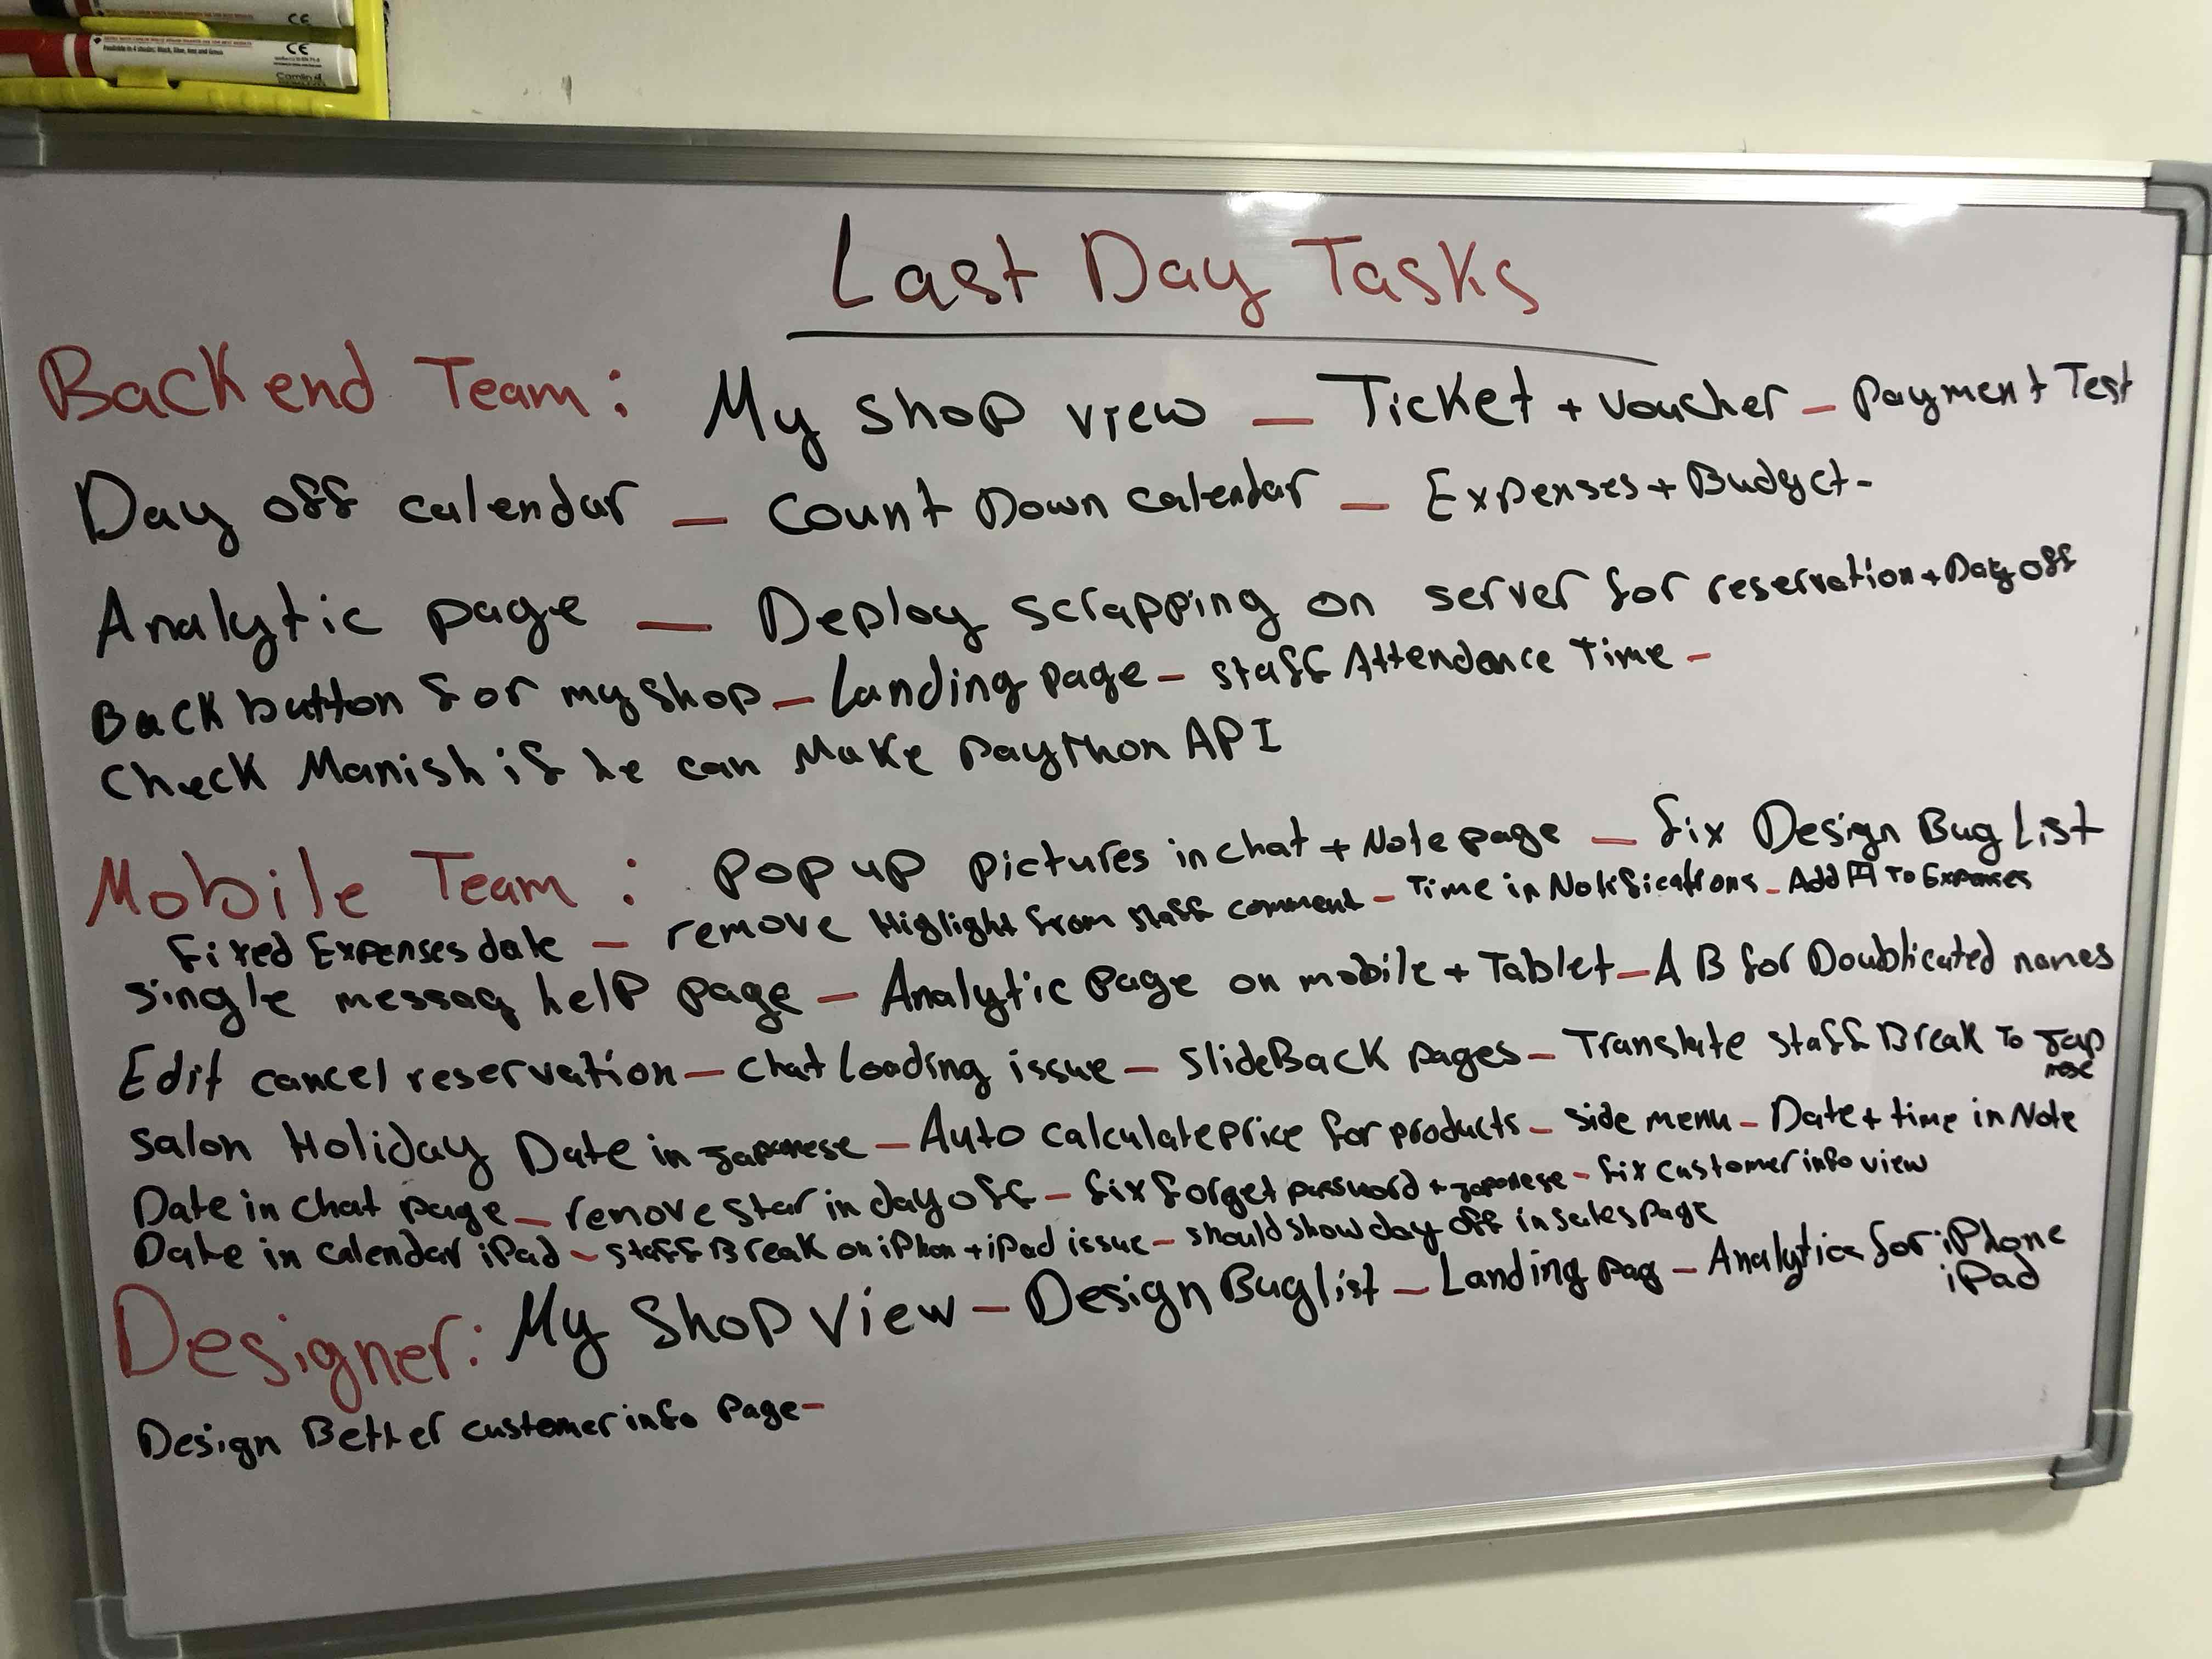 CE
CE
Camlin
Last Day Tasks
Backend Team: My shop view – Ticket + Voucher – Payment Test
Day off calendar – Count Down calendar – Expenses + Budget -
Analytic page – Deploy scrapping on server for reservation + Day off
Back button for my shop – Landing page – staff Attendence Time –
Check Manish if he can Make Paython API
Mobile Team: Pop up pictures in chat + Note page – fix Design Bug List
fixed Expenses date – remove Highlight from staff comment – Time in Notifications – Add 円 To Expenses
single messag help page – Analytic Page on mobile + Tablet – A B for Doublicated names
Edit cancel reservation – chat loading issue – slideBack pages – Translate staff Break To Japanese
salon Holiday Date in Japanese – Auto calculate price for products – side menu – Date + time in Note
Date in chat page – remove star in day off – fix forget password + Japanese – fix customer info view
Date in calendar iPad – staff Break on iPhon + iPad issue – should show day off in sales page
Designer: My Shop View – Design Bug list – Landing pag – Analytics for iPhone iPad
Design Better customer info Page –